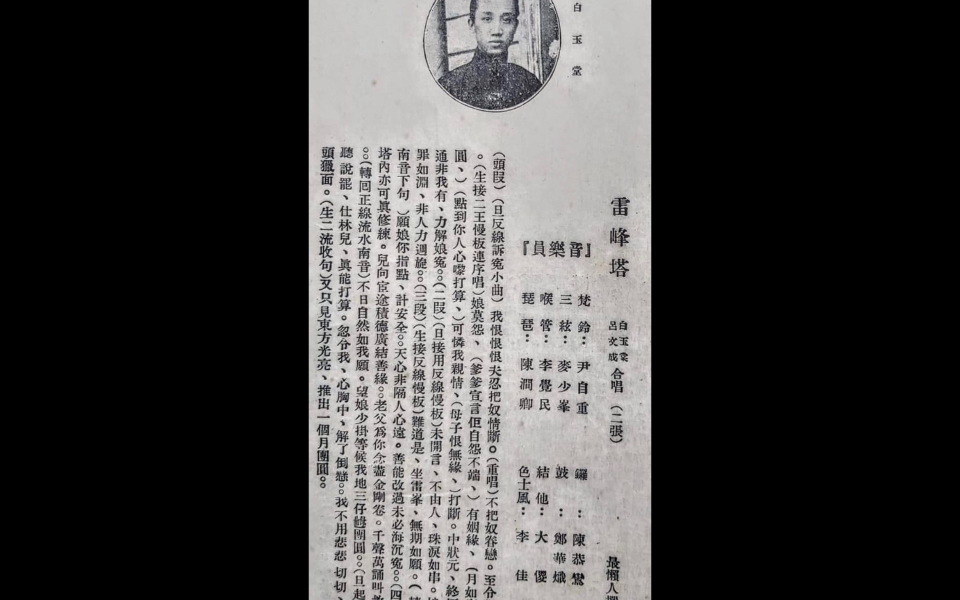 白玉堂
雷峰塔
白玉棠
呂文成
合唱
(二張)
最懶人
『員樂音』
梵鈴：尹自重
三絃：麥少峯
喉管：李覺民
琵琶：陳潤卿
鑼：陳恭
鼓：鄭華熾
結他：大傻
色士風：李佳
(頭段)(旦反線訴冤小曲)我恨恨恨夫忍把奴情斷。(重唱)不把奴眷戀。至令
。(生接二王慢板連序唱)娘莫怨、(爹爹宣言佢自怨不端、)有姻緣、(月如
圓、)(點到你人心嚟打算、)可憐我親情、(母子恨無緣、)打斷。中狀元、終
通非我有、力解娘冤。。(二段)(旦接用反線慢板)未開言、不由人、珠淚如串。
罪如淵、非人力週旋。。(三段)(生接反線慢板)難道是、坐雷峯、無期如願。(
南音下句)願娘你指點、計安全。。天心非隔人心遠。善能改過未必海沉冤。。(四
塔內亦可眞修練。兒向宦途積德廣結善緣。。老父爲你念盡金剛卷。千聲萬誦叫
。。(轉回正線流水南音)不日自然如我願。望娘少掛等候我地三仔爺團圓。。(旦起
聽說罷、仕林兒、眞能打算。忽令我、心胸中、解了倒懸。。我不用悲悲切切、
頭獵面。(生二流收句)又只見東方光亮、推出一個月團圓。。